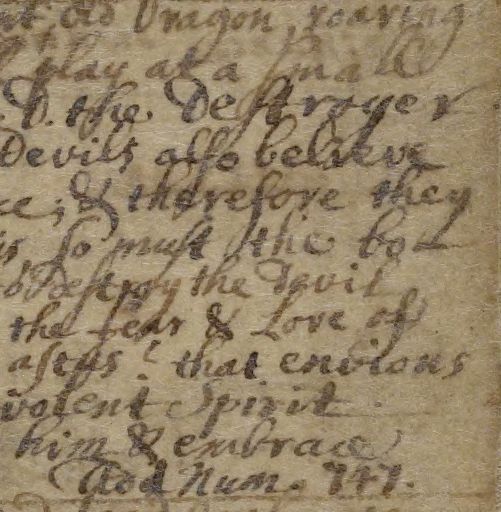 Old Dragon, roaring
play at a small
D. the Destroyer
Devils also believe
ce; & therefore they
is so must the bo-
Destroy the Devil
the fear & Love of
that envious
volent Spirit
him & embrace
Add Num. 747.